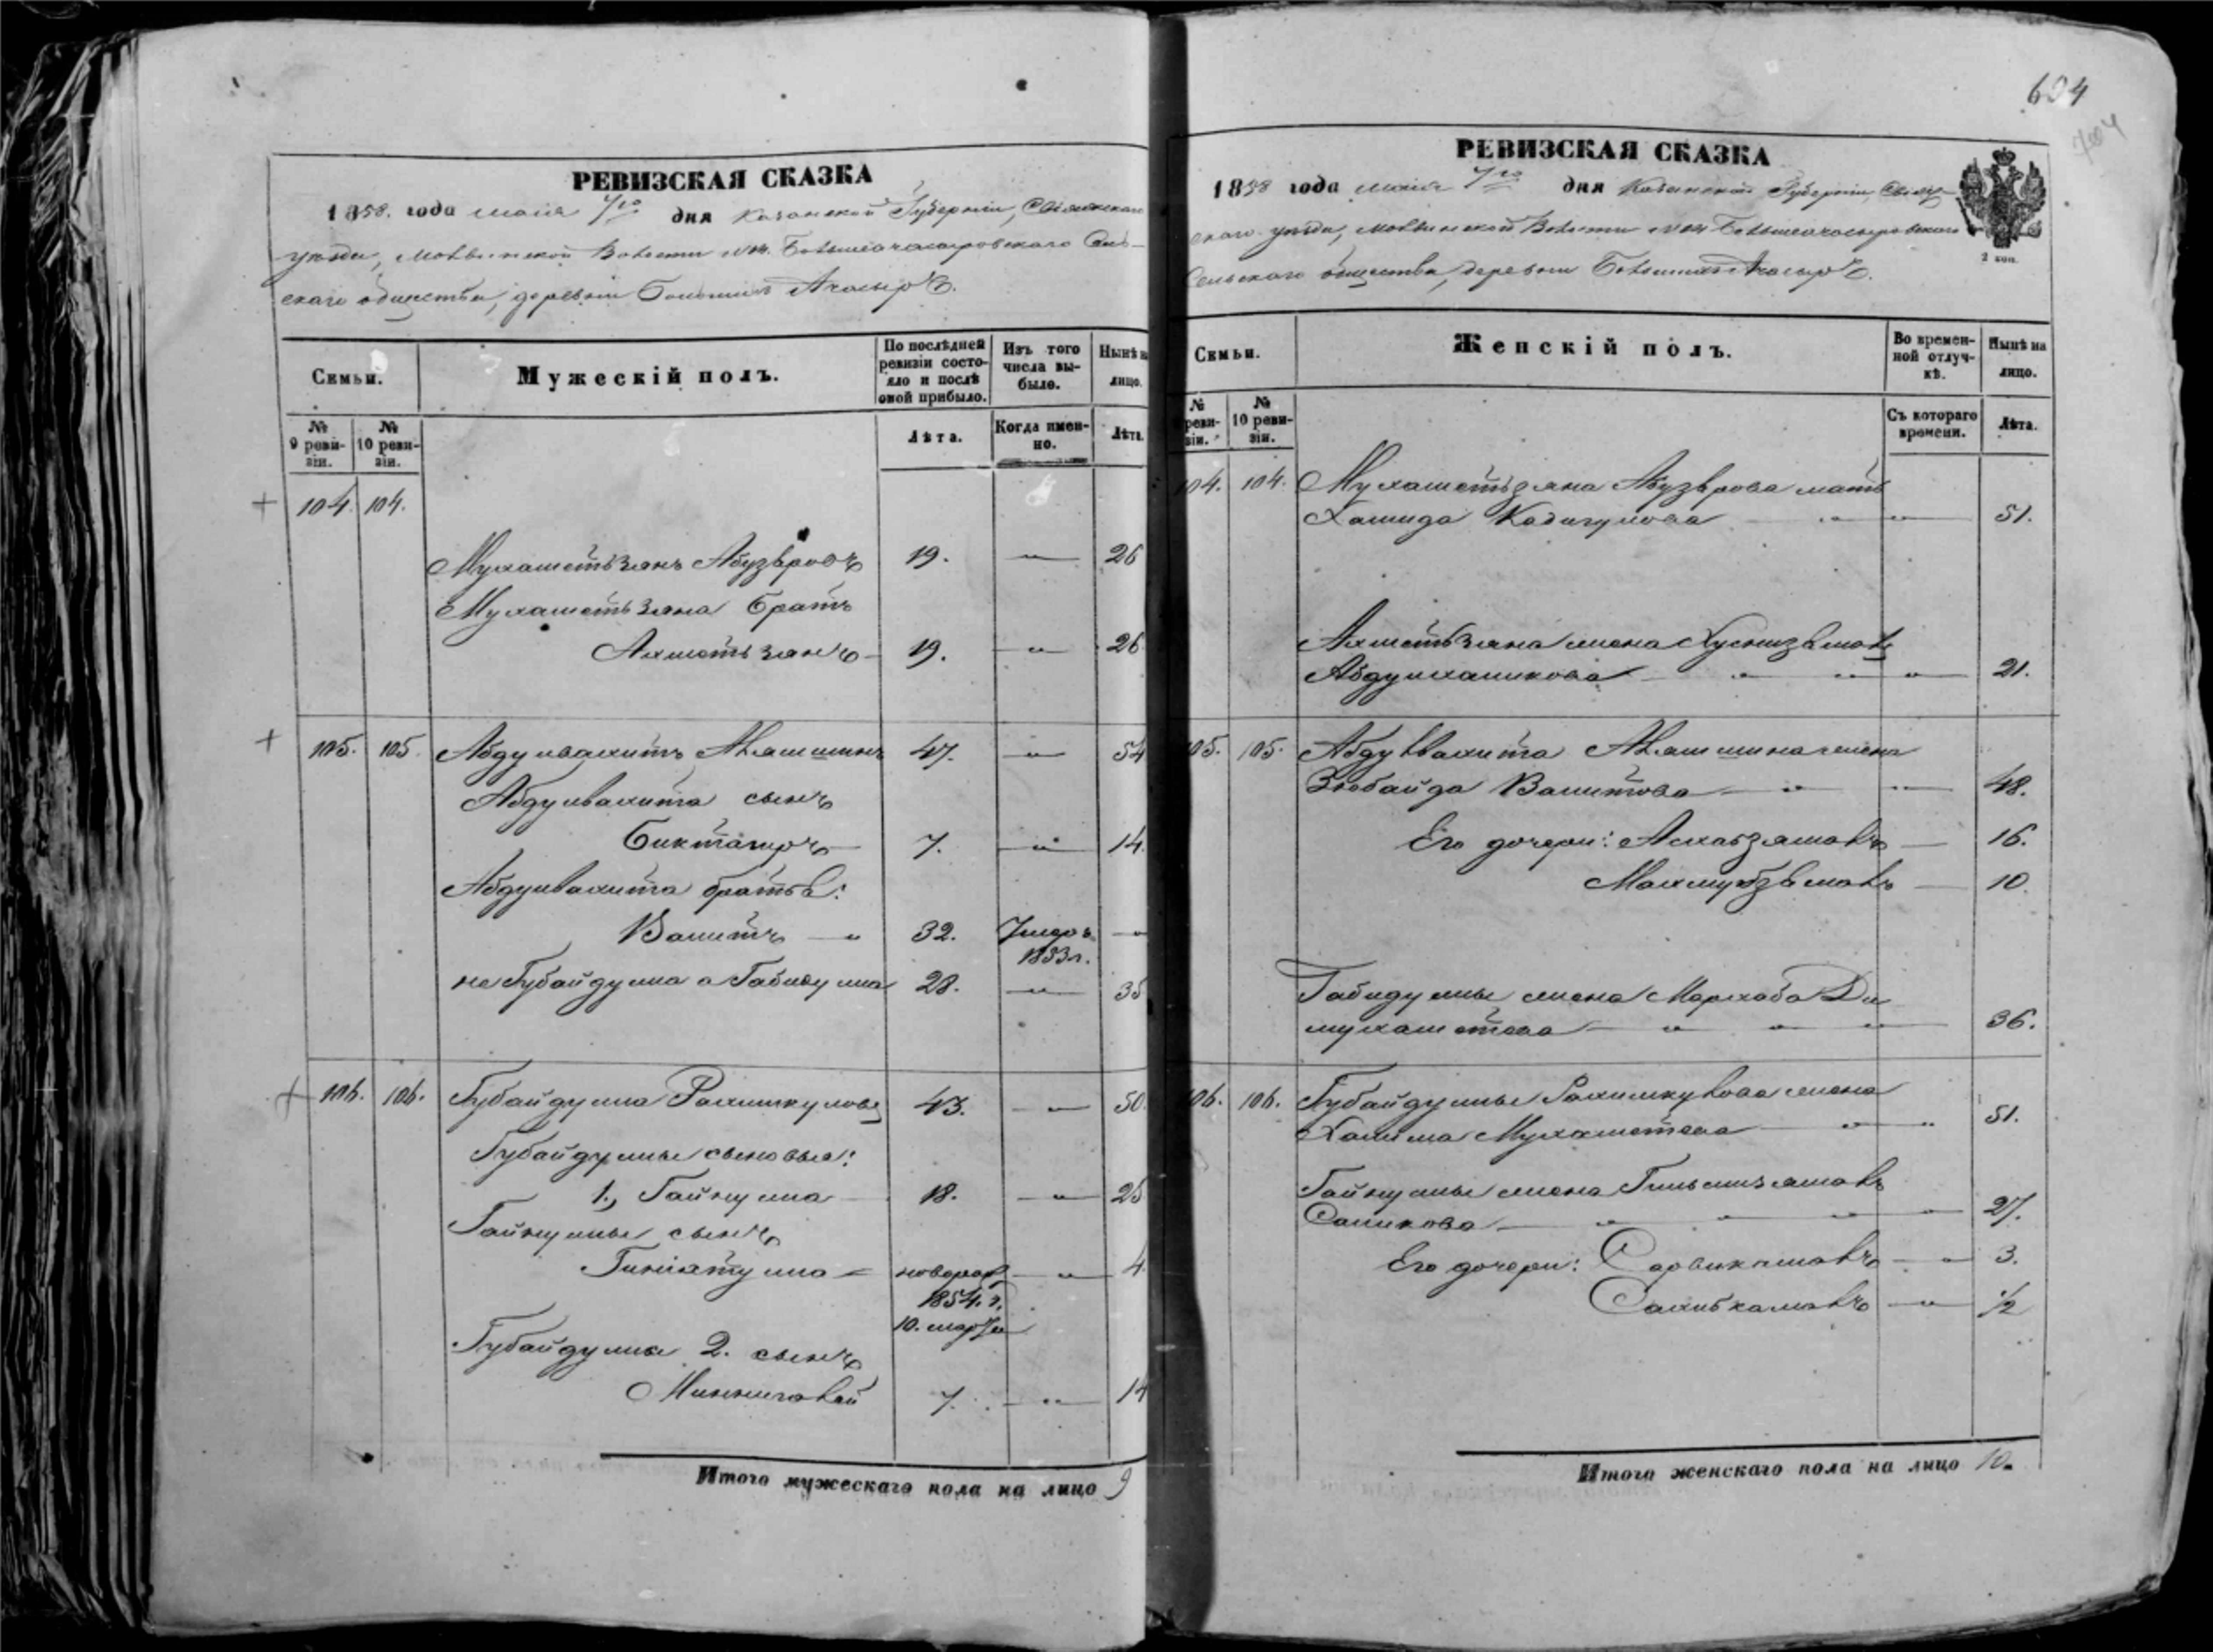 604
704
РЕВИЗСКАЯ СКАЗКА
1858. года маія 7го дня Казанской Губерніи, Свіяжскаго
уѣзда, Молвинской Волости Большеачасыровскаго Сель-
скаго общества, деревни Большихъ Ачасыръ.
Семьи.
Мужескій полъ.
По послѣдней ревизіи состояло и послѣ оной прибыло.
Изъ того числа выбыло.
Нынѣ на лицо.
№ 9 ревизіи.
№ 10 ревизіи.
Лѣта.
Когда именно.
Лѣта.
104. 104.
Мухаметьзянъ Абузяровъ 19. — " — 26
Мухаметьзяна братъ
Ахметьзянъ — 19. — " — 26
105. 105. Абдулвахитъ Аляшинъ 47. — " — 54
Абдулвахита сынъ
Биктагиръ — 7. — " — 14.
Абдулвахита братья:
Валитъ — " 32. Умеръ 1853 г. — "
не Губайдулла а Габидулла 28. — " — 35
106. 106. Губайдулла Рахимкуловъ 43. — " — 50.
Губайдуллы сыновья:
1., Гайнулла — 18. — " — 25
Гайнуллы сынъ
Гиніятулла — новорож 1854. г. 10. марта — " — 4.
Губайдуллы 2. сынъ
Миннигалей 7. — " — 14
Итого мужескаго пола на лицо 9
РЕВИЗСКАЯ СКАЗКА
1858 года маія 7го дня Казанской Губерніи, Свіяж-
скаго уѣзда, Молвинской Волости Большеачасыровскаго
Сельскаго общества, деревни Большихъ Ачасыръ.
2 коп.
Семьи.
Женскій полъ.
Во временной отлучкѣ.
Нынѣ на лицо.
№ ревизіи.
№ 10 ревизіи.
Съ котораго времени.
Лѣта.
104. 104. Мухаметьзяна Абузярова мать
Хамида Кадигулова — " — " — 51.
Ахметьзяна жена Хуснизямалъ
Абдулхаликова — " " " — 21.
105. 105. Абдулвахита Аляшина жена
Зюбайда Валитова — " — " — 48.
Его дочери: Асхабзямалъ — 16.
Махмубзямалъ — 10.
Габидуллы жена Мархаба Ди
мухаметева — " " " — 36.
106. 106. Губайдуллы Рахимкулова жена
Халима Мухаметева — " — " 51.
Гайнуллы жена Гильмизямалъ
Саликова — " " " " — 27.
Его дочери: Сарвикамалъ — " — 3.
Сахибкамалъ — " — 1/2
Итого женскаго пола на лицо 10.